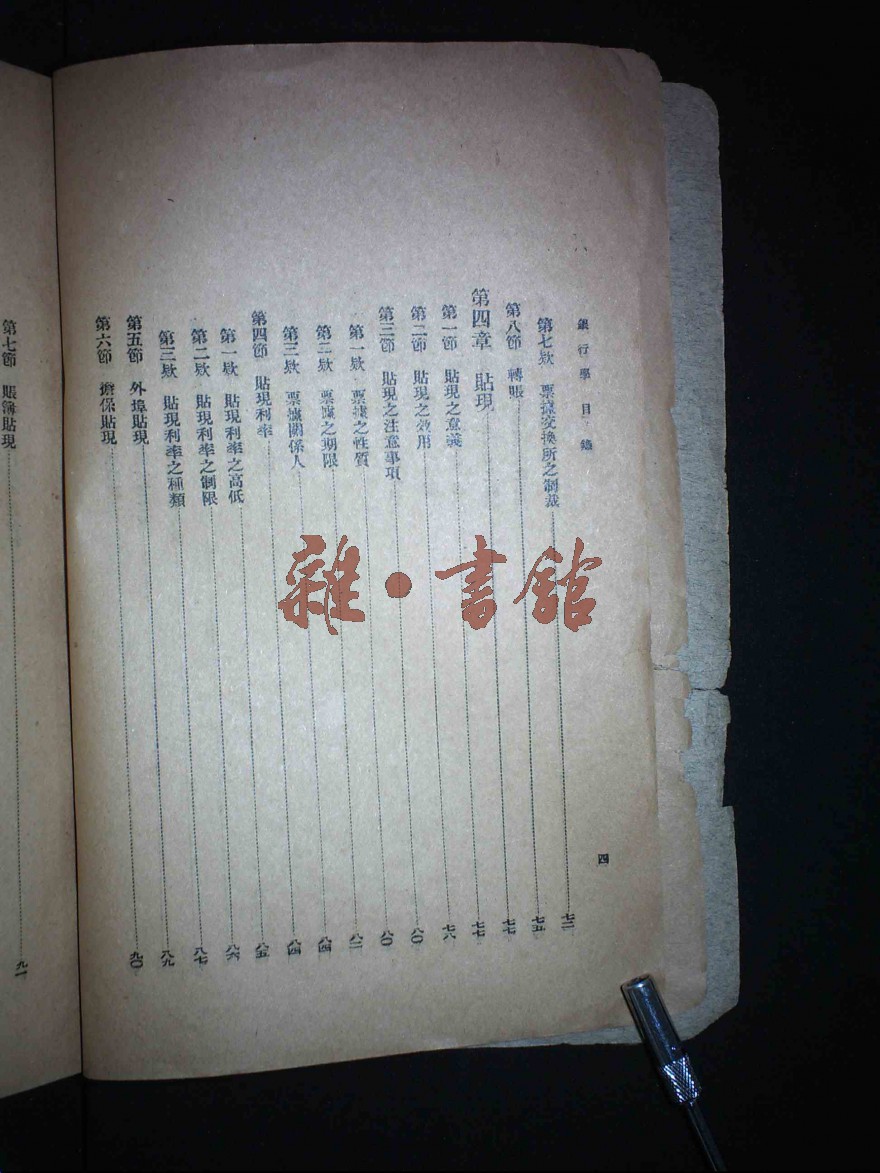 銀行學 目錄
第七欵 票據交換所之制裁 七二
第八節 轉賬 七五
第四章 貼現 七七
第一節 貼現之意義 七七
第二節 貼現之效用 七八
第三節 貼現之注意事項 八〇
第一欵 票據之性質 八〇
第二欵 票據之期限 八二
第三欵 票據關係人 八四
第四節 貼現利率 八四
第一欵 貼現利率之高低 八五
第二欵 貼現利率之制限 八六
第三欵 貼現利率之種類 八七
第五節 外埠貼現 八九
第六節 擔保貼現 九〇
四
第七節 賬簿貼現 九一
雜·書館